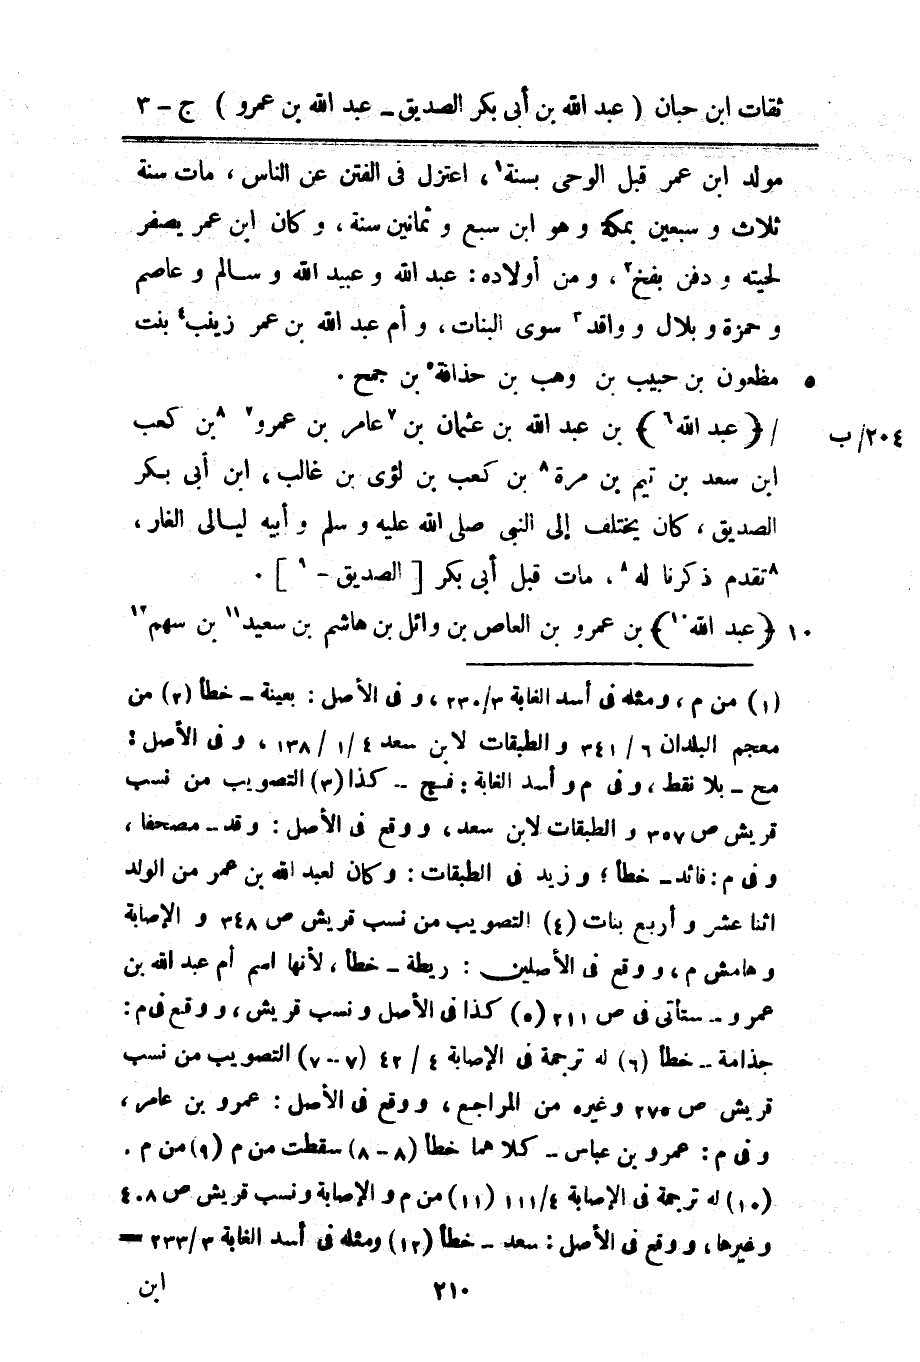 ثقات ابن حبان ( عبد الله بن أبى بكر الصديق ـ عبد الله بن عمرو ) ج - ٣
مولد ابن عمر قبل الوحى بسنة١، اعتزل فى الفتن عن الناس ، مات سنة
ثلاث و سبعين بمكة و هو ابن سبع و ثمانين سنة ، و كان ابن عمر يصفر
لحيته و دفن بفخ٢، و من أولاده : عبد الله و عبيد الله و سالم و عاصم
و حمزة و بلال و واقد٣ سوى البنات ، و أم عبد الله بن عمر زينب٤ بنت
٥ مظعون بن حبيب بن وهب بن حذافة٥ بن جمح .
٢٠٤/ب / ﴿ عبد الله٦ ﴾ بن عبد الله بن عثمان بن ٧عامر بن عمرو٧ ٨بن كعب
ابن سعد بن تيم بن مرة٨ بن كعب بن لؤى بن غالب ، ابن أبى بكر
الصديق ، كان يختلف إلى النبى صلى الله عليه و سلم و أبيه ليالى الغار ،
٨تقدم ذكرنا له٨، مات قبل أبى بكر [ الصديق - ٩ ] .
١٠ ﴿ عبد الله١٠ ﴾ بن عمرو بن العاص بن وائل بن هاشم بن سعيد١١ بن سهم١٢
(١) من م ، ومثله فى أسد الغابة ٢٣٠/٣ ، و فى الأصل : بعينة ـ خطأ (٢) من
معجم البلدان ٦ / ٣٤١ و الطبقات لابن سعد ٤ / ١ / ١٣٨ ، و فى الأصل :
مح ـ بلا نقط ، و فى م و أسد الغابة : فج ـ كذا (٣) التصويب من نسب
قريش ص ٣٥٧ و الطبقات لابن سعد ، و وقع فى الأصل : وقد ـ مصحفا ،
و فى م : فائد ـ خطأ ؛ و زيد فى الطبقات : وكان لعبد الله بن عمر من الولد
اثنا عشر و أربع بنات (٤) التصويب من نسب قريش ص ٣٤٨ و الإصابة
و هامش م ، و وقع فى الأصلين : ريطة ـ خطأ ، لأنها اسم أم عبد الله بن
عمرو ـ ستأتى فى ص ٢١١ (٥) كذا فى الأصل و نسب قريش ، و وقع فى م :
جذامة ـ خطأ (٦) له ترجمة فى الإصابة ٤ / ٤٢ (٧ - ٧) التصويب من نسب
قريش ص ٢٧٥ وغيره من المراجع ، و وقع فى الأصل : عمرو بن عامر ،
و فى م : عمرو بن عباس ـ كلاهما خطأ (٨ - ٨) سقطت من م (٩) من م .
(١٠) له ترجمة فى الإصابة ١١١/٤ (١١) من م و الإصابة و نسب قريش ص ٤٠٨
و غيرها ، و وقع فى الأصل : سعد ـ خطأ (١٢) ومثله فى أسد الغابة ٢٣٣/٣ =
٢١٠ ابن